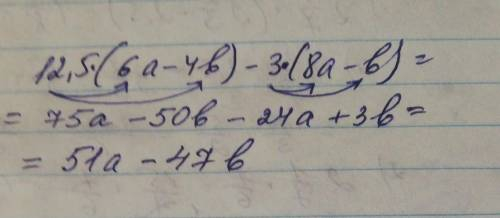 12,5·(6a-4b)-3·(8a-b)=
= 75a -50b - 24a +3b=
= 51a - 47b